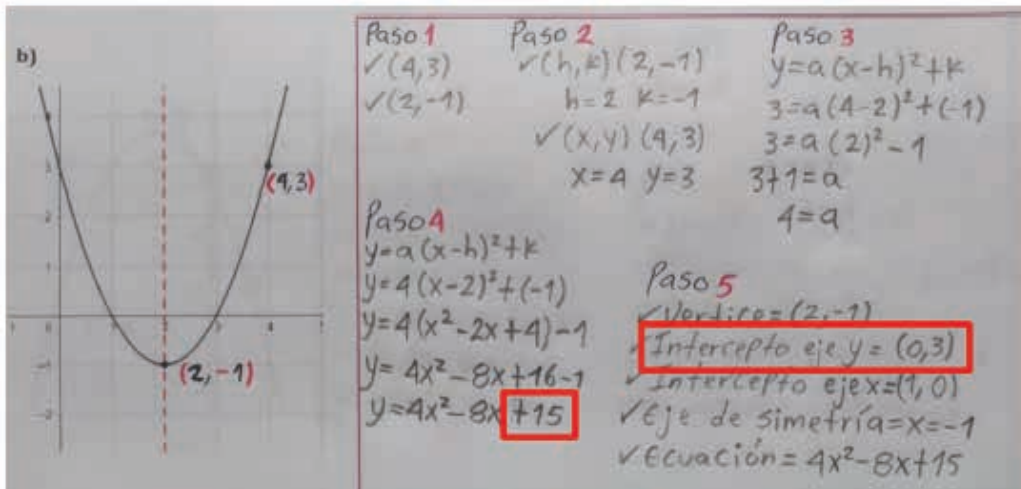 b)
4
3
2
1
1 0 1 2 3 4 5
-1
-2
(4,3)
(2,-1)
Paso 1
✓(4,3)
✓(2,-1)
Paso 2
✓(h,k)(2,-1)
h=2 k=-1
✓(x,y)(4,3)
x=4 y=3
Paso 3
y=a(x-h)²+k
3=a(4-2)²+(-1)
3=a(2)²-1
3+1=a
4=a
Paso 4
y=a(x-h)²+k
y=4(x-2)²+(-1)
y=4(x²-2x+4)-1
y=4x²-8x+16-1
y=4x²-8x+15
Paso 5
✓Vertice=(2,-1)
✓Intercepto eje y=(0,3)
✓Intercepto eje x=(1,0)
✓Eje de simetría=x=-1
✓Ecuación=4x²-8x+15